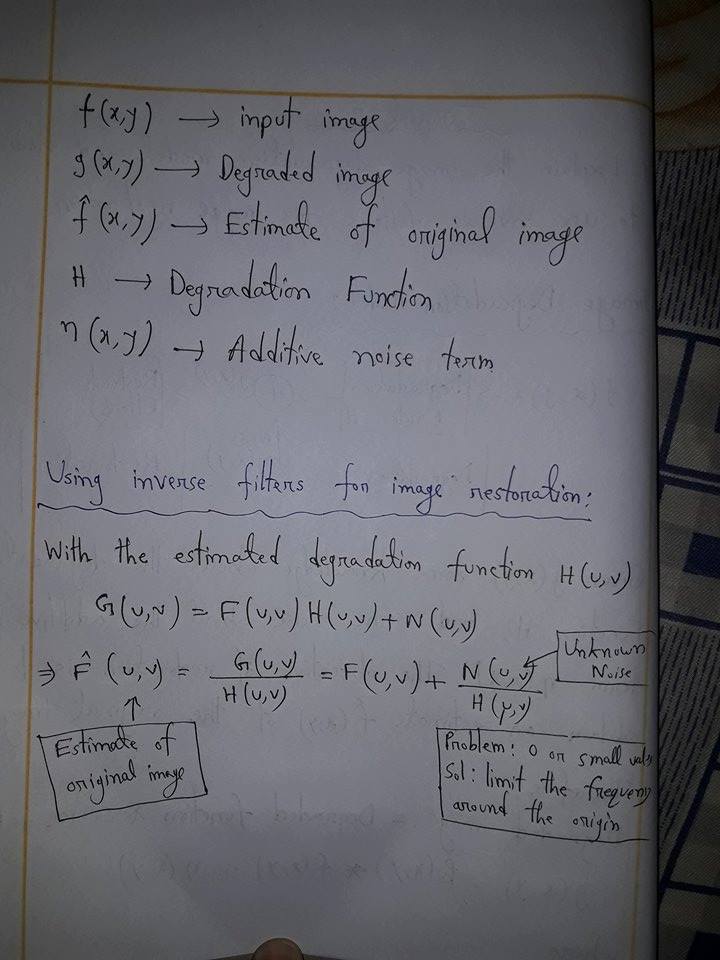 f(x,y) → input image
g(x,y) → Degraded image
f̂(x,y) → Estimate of original image
H → Degradation Function
η(x,y) → Additive noise term
Using inverse filters for image restoration:
With the estimated degradation function H(u,v)
G(u,v) = F(u,v) H(u,v) + N(u,v)
⇒ F̂(u,v) = G(u,v) / H(u,v) = F(u,v) + N(u,v) / H(u,v)
Unknown
Noise
Estimate of
original image
Problem: 0 or small vals
Sol: limit the frequency
around the origin